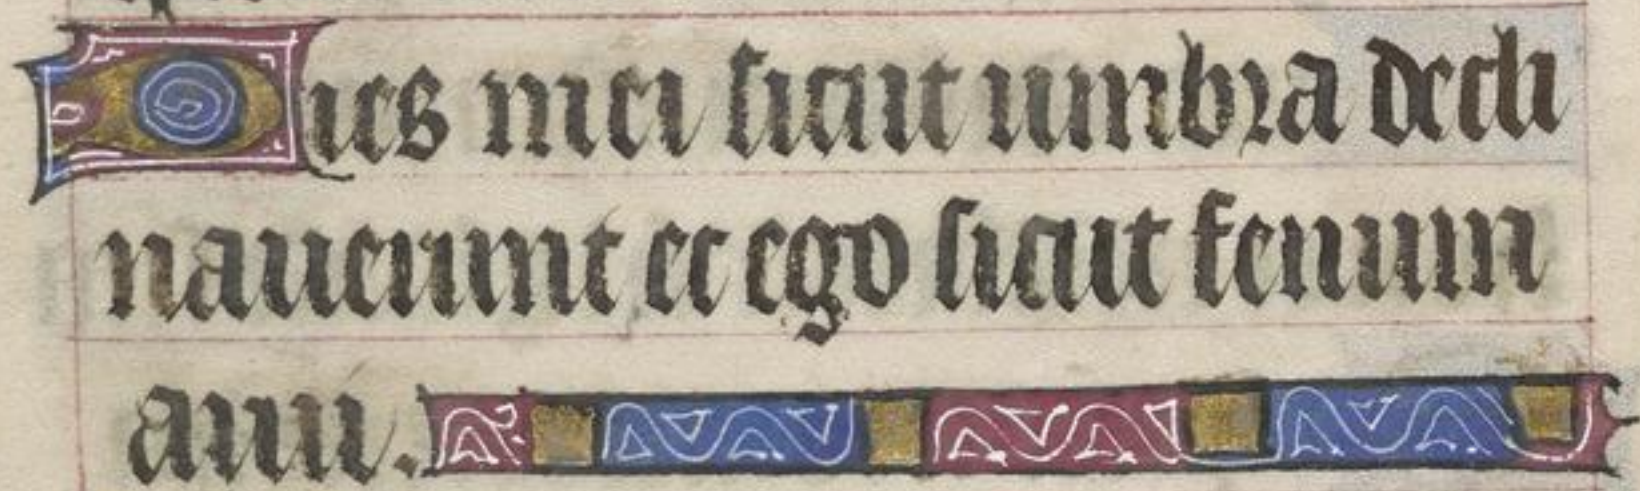 Dies mei sicut umbra decli
nauerunt et ego sicut fenum
arui.